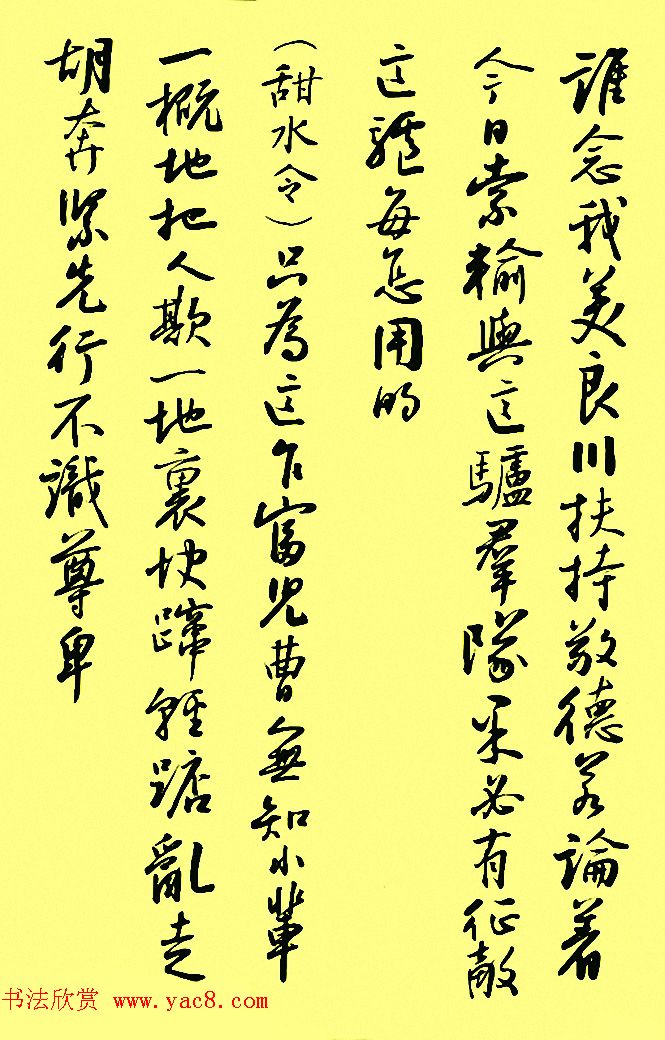 誰念我美良川扶持敬德若論着
今日索輸與這驢羣隊果必有征敵
這驢每怎用的
（甜水令）只為這乍富兒曹無知小輩
一概地把人欺一地裏快蹿輕踮亂走
胡奔緊先行不識尊卑
书法欣赏 www.yac8.com